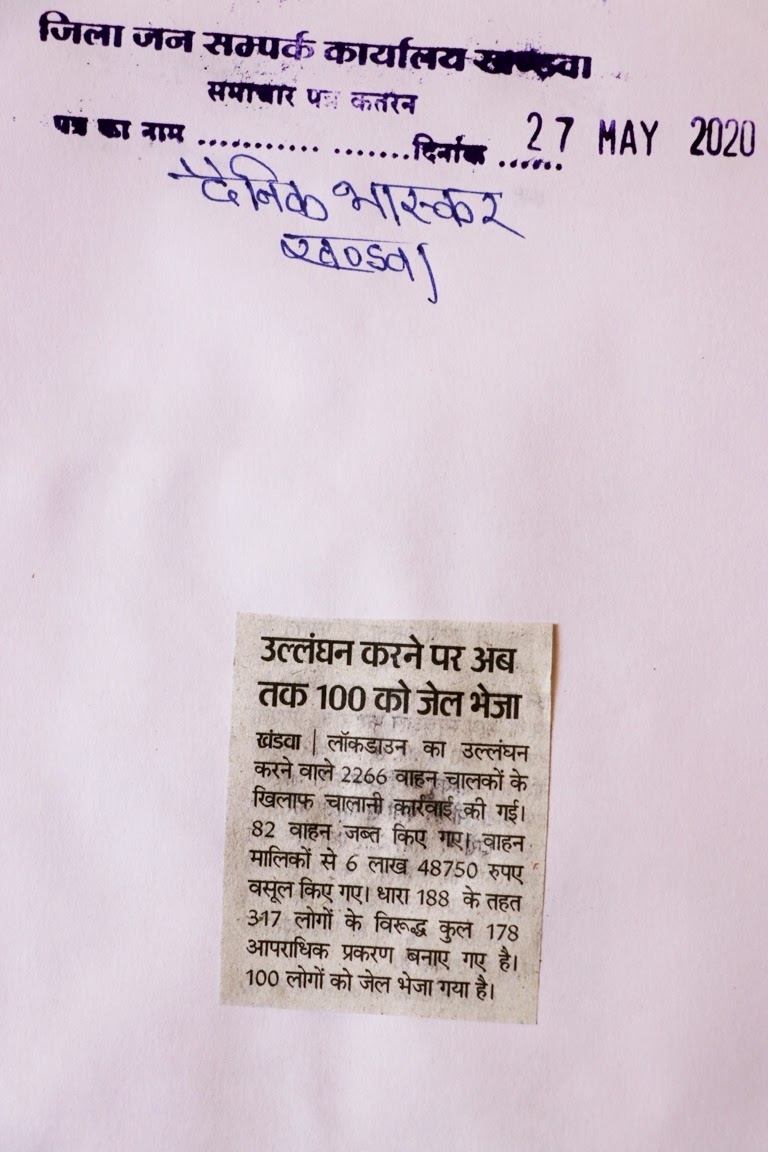 जिला जन सम्पर्क कार्यालय खण्डवा
समाचार पत्र कतरन
पत्र का नाम .................. दिनांक ...... 27 MAY 2020
दैनिक भास्कर
खण्डवा
उल्लंघन करने पर अब
तक 100 को जेल भेजा
खंडवा | लॉकडाउन का उल्लंघन
करने वाले 2266 वाहन चालकों के
खिलाफ चालानी कार्रवाई की गई।
82 वाहन जब्त किए गए। वाहन
मालिकों से 6 लाख 48750 रुपए
वसूल किए गए। धारा 188 के तहत
317 लोगों के विरूद्ध कुल 178
आपराधिक प्रकरण बनाए गए है।
100 लोगों को जेल भेजा गया है।